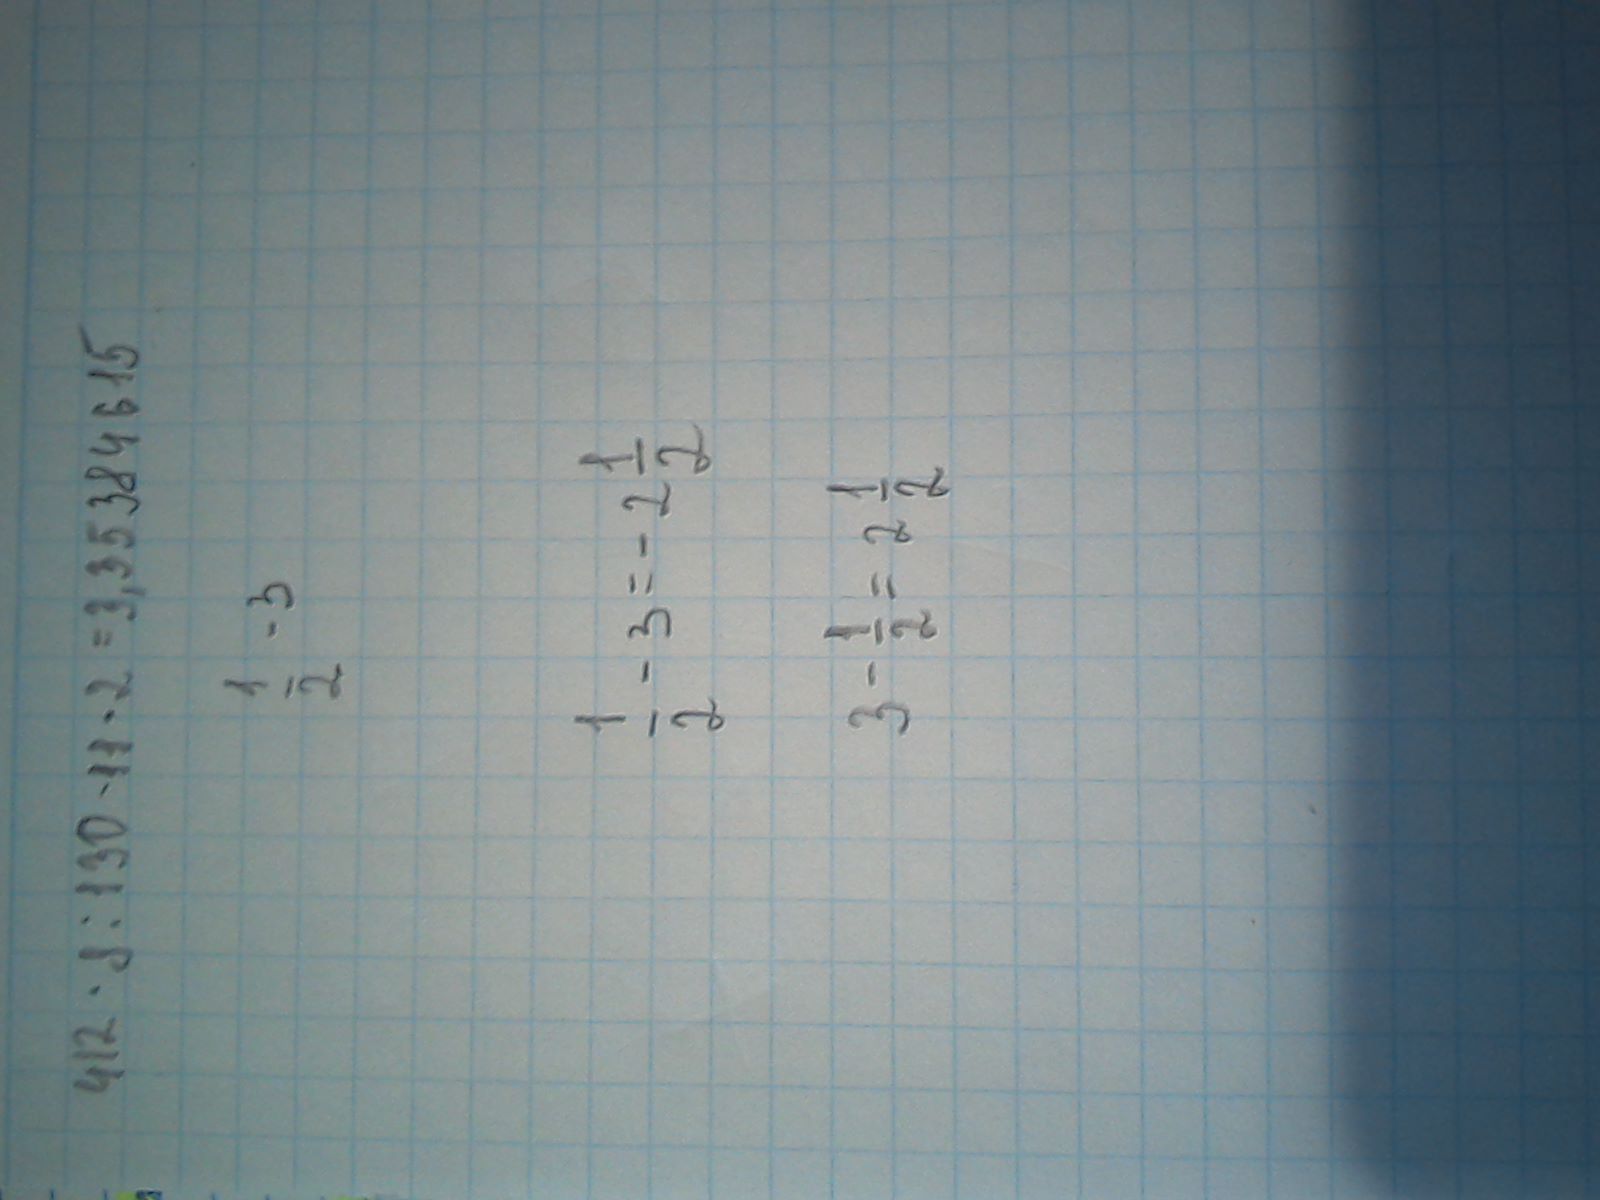 412 · 8 : 130 - 11 · 2 = 3,35384615
1/2 - 3
1/2 - 3 = - 2 1/2
3 - 1/2 = 2 1/2